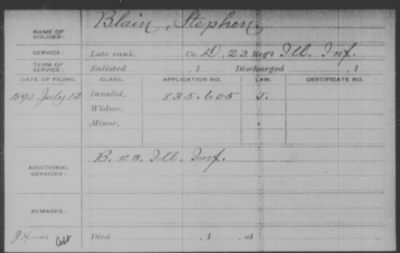 NAME OF SOLDIER: Blain, Stephen.
SERVICE: Late rank, Co. D, 23 Reg't Ill. Inf.
TERM OF SERVICE: Enlisted , 1 Discharged , 1
DATE OF FILING. CLASS. APPLICATION NO. LAW. CERTIFICATE NO.
1890 July 12 Invalid, 835.605 J.
Widow,
Minor,
ADDITIONAL SERVICES: Ill. Inf.
REMARKS:
Died , 1 , at